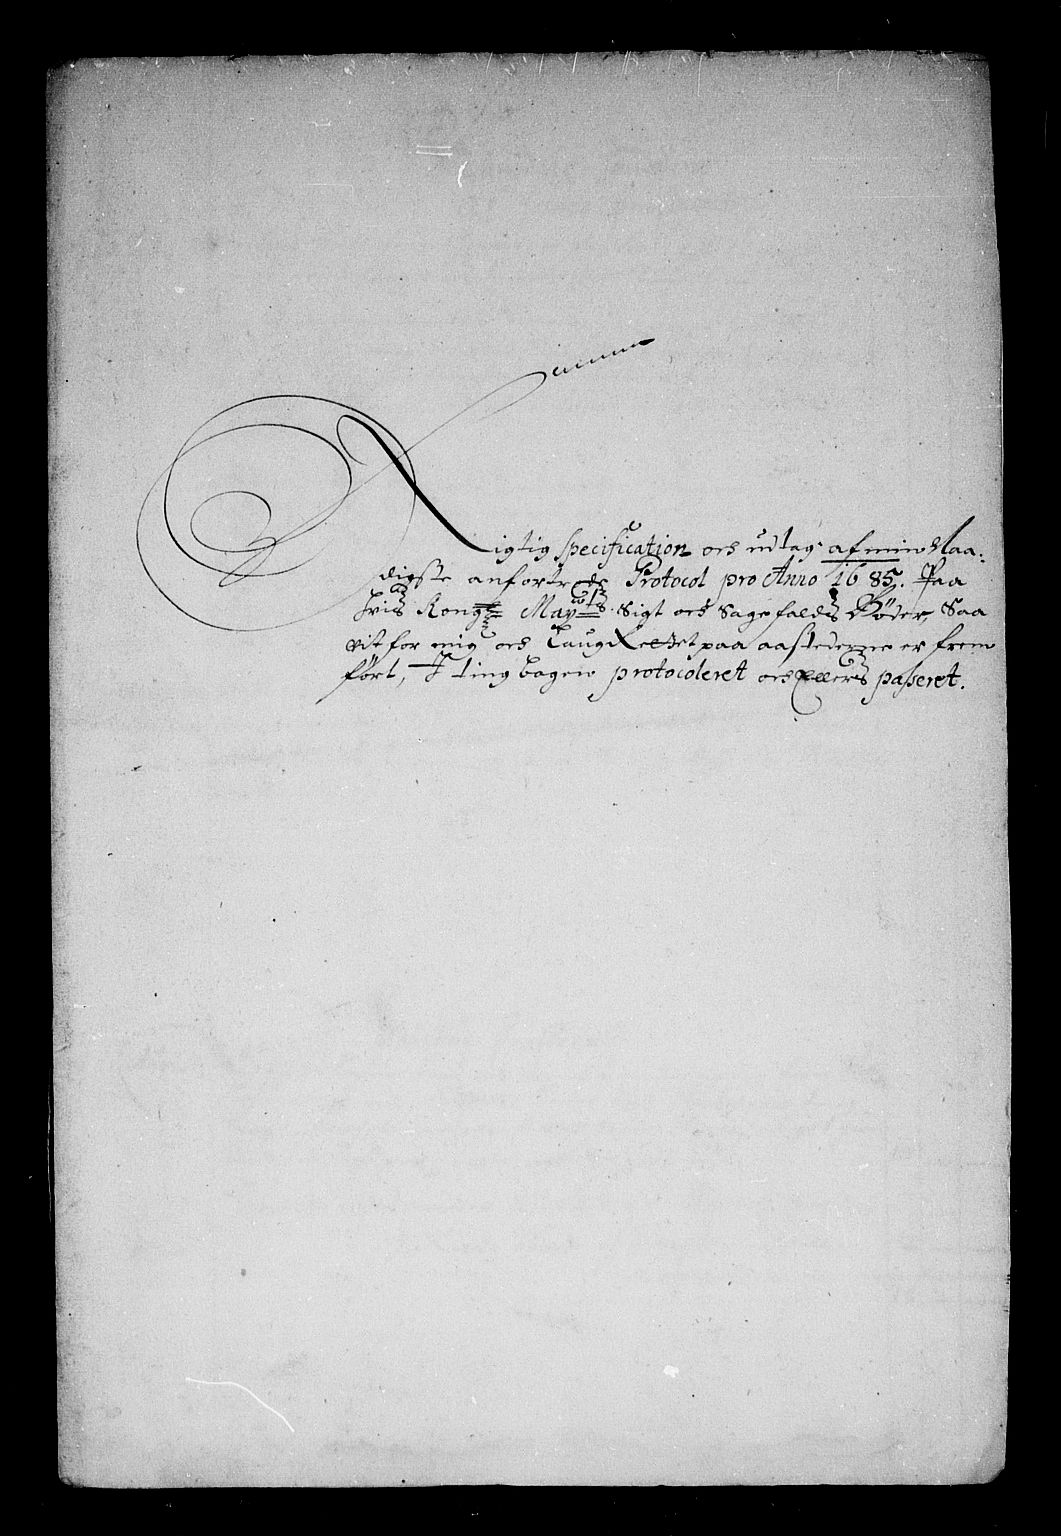 Rigtig Specification och udtag af min Naa-
digste anfortrode Protocol pro Anno 1685. Paa
hvis Kong: May:ts Sigt och Sagefalds Bøder, Saa
vit for mig och Laug Rettet paa aastederne er frem
ført, I tingbogen protocoleret och Ellers passeret.